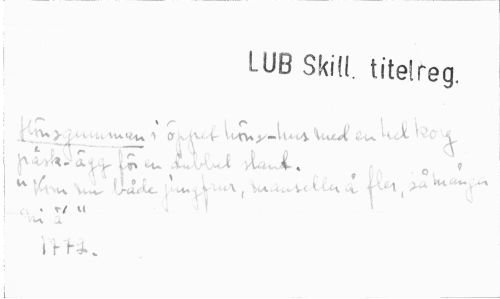 LUB Skill. titelreg.
Hönsgumman i öppet höns-hus med en hel korg
påsk-ägg för en dubbel slant.
"Kom nu både jungfrur, mamseller å fler, så många
ni ä'"
1772.